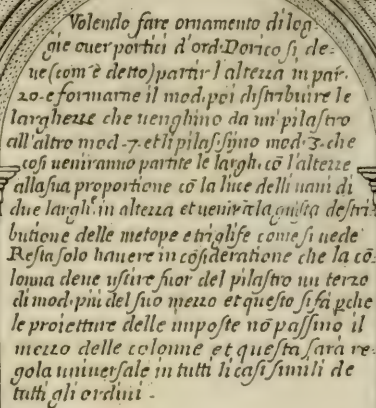 Volendo fare ornamento di log=
gie ouer portici d'ord. Dorico si de=
ue (com'è detto) partir l'altezza in par.
20. e formarne il mod. poi distribuire le
larghezze che uenghino da un pilastro
all'altro mod. 7. et li pilas. sijno mod. 3. che
cosi ueniranno partite le largh. cō l'altezze
alla sua proportione cō la luce delli uani di
due largh. in altezza et uenirà la giusta destri=
butione delle metope e triglife come si uede
Resta solo hauere in cōsideratione che la cō=
lonna deue uscire fuor del pilastro un terzo
di mod. piu del suo mezzo et questo si fà pche
le proietture delle imposte nō passino il
mezzo delle colonne et questa sarà re=
gola uniuersale in tutti li casi simili de
tutti gli ordini.